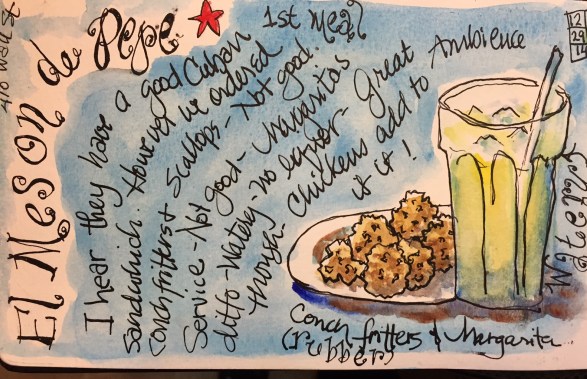 El Meson de Pepe
410 Wall St
1st meal
I hear they have a good Cuban
sandwich. However we ordered
conch fritters & Scallops - Not good.
Service - Not good - Margaritas
ditto - Watery - no liquor - Great Ambience
though Chickens add to
it !
Conch fritters & Margarita
(rubber)
12
29